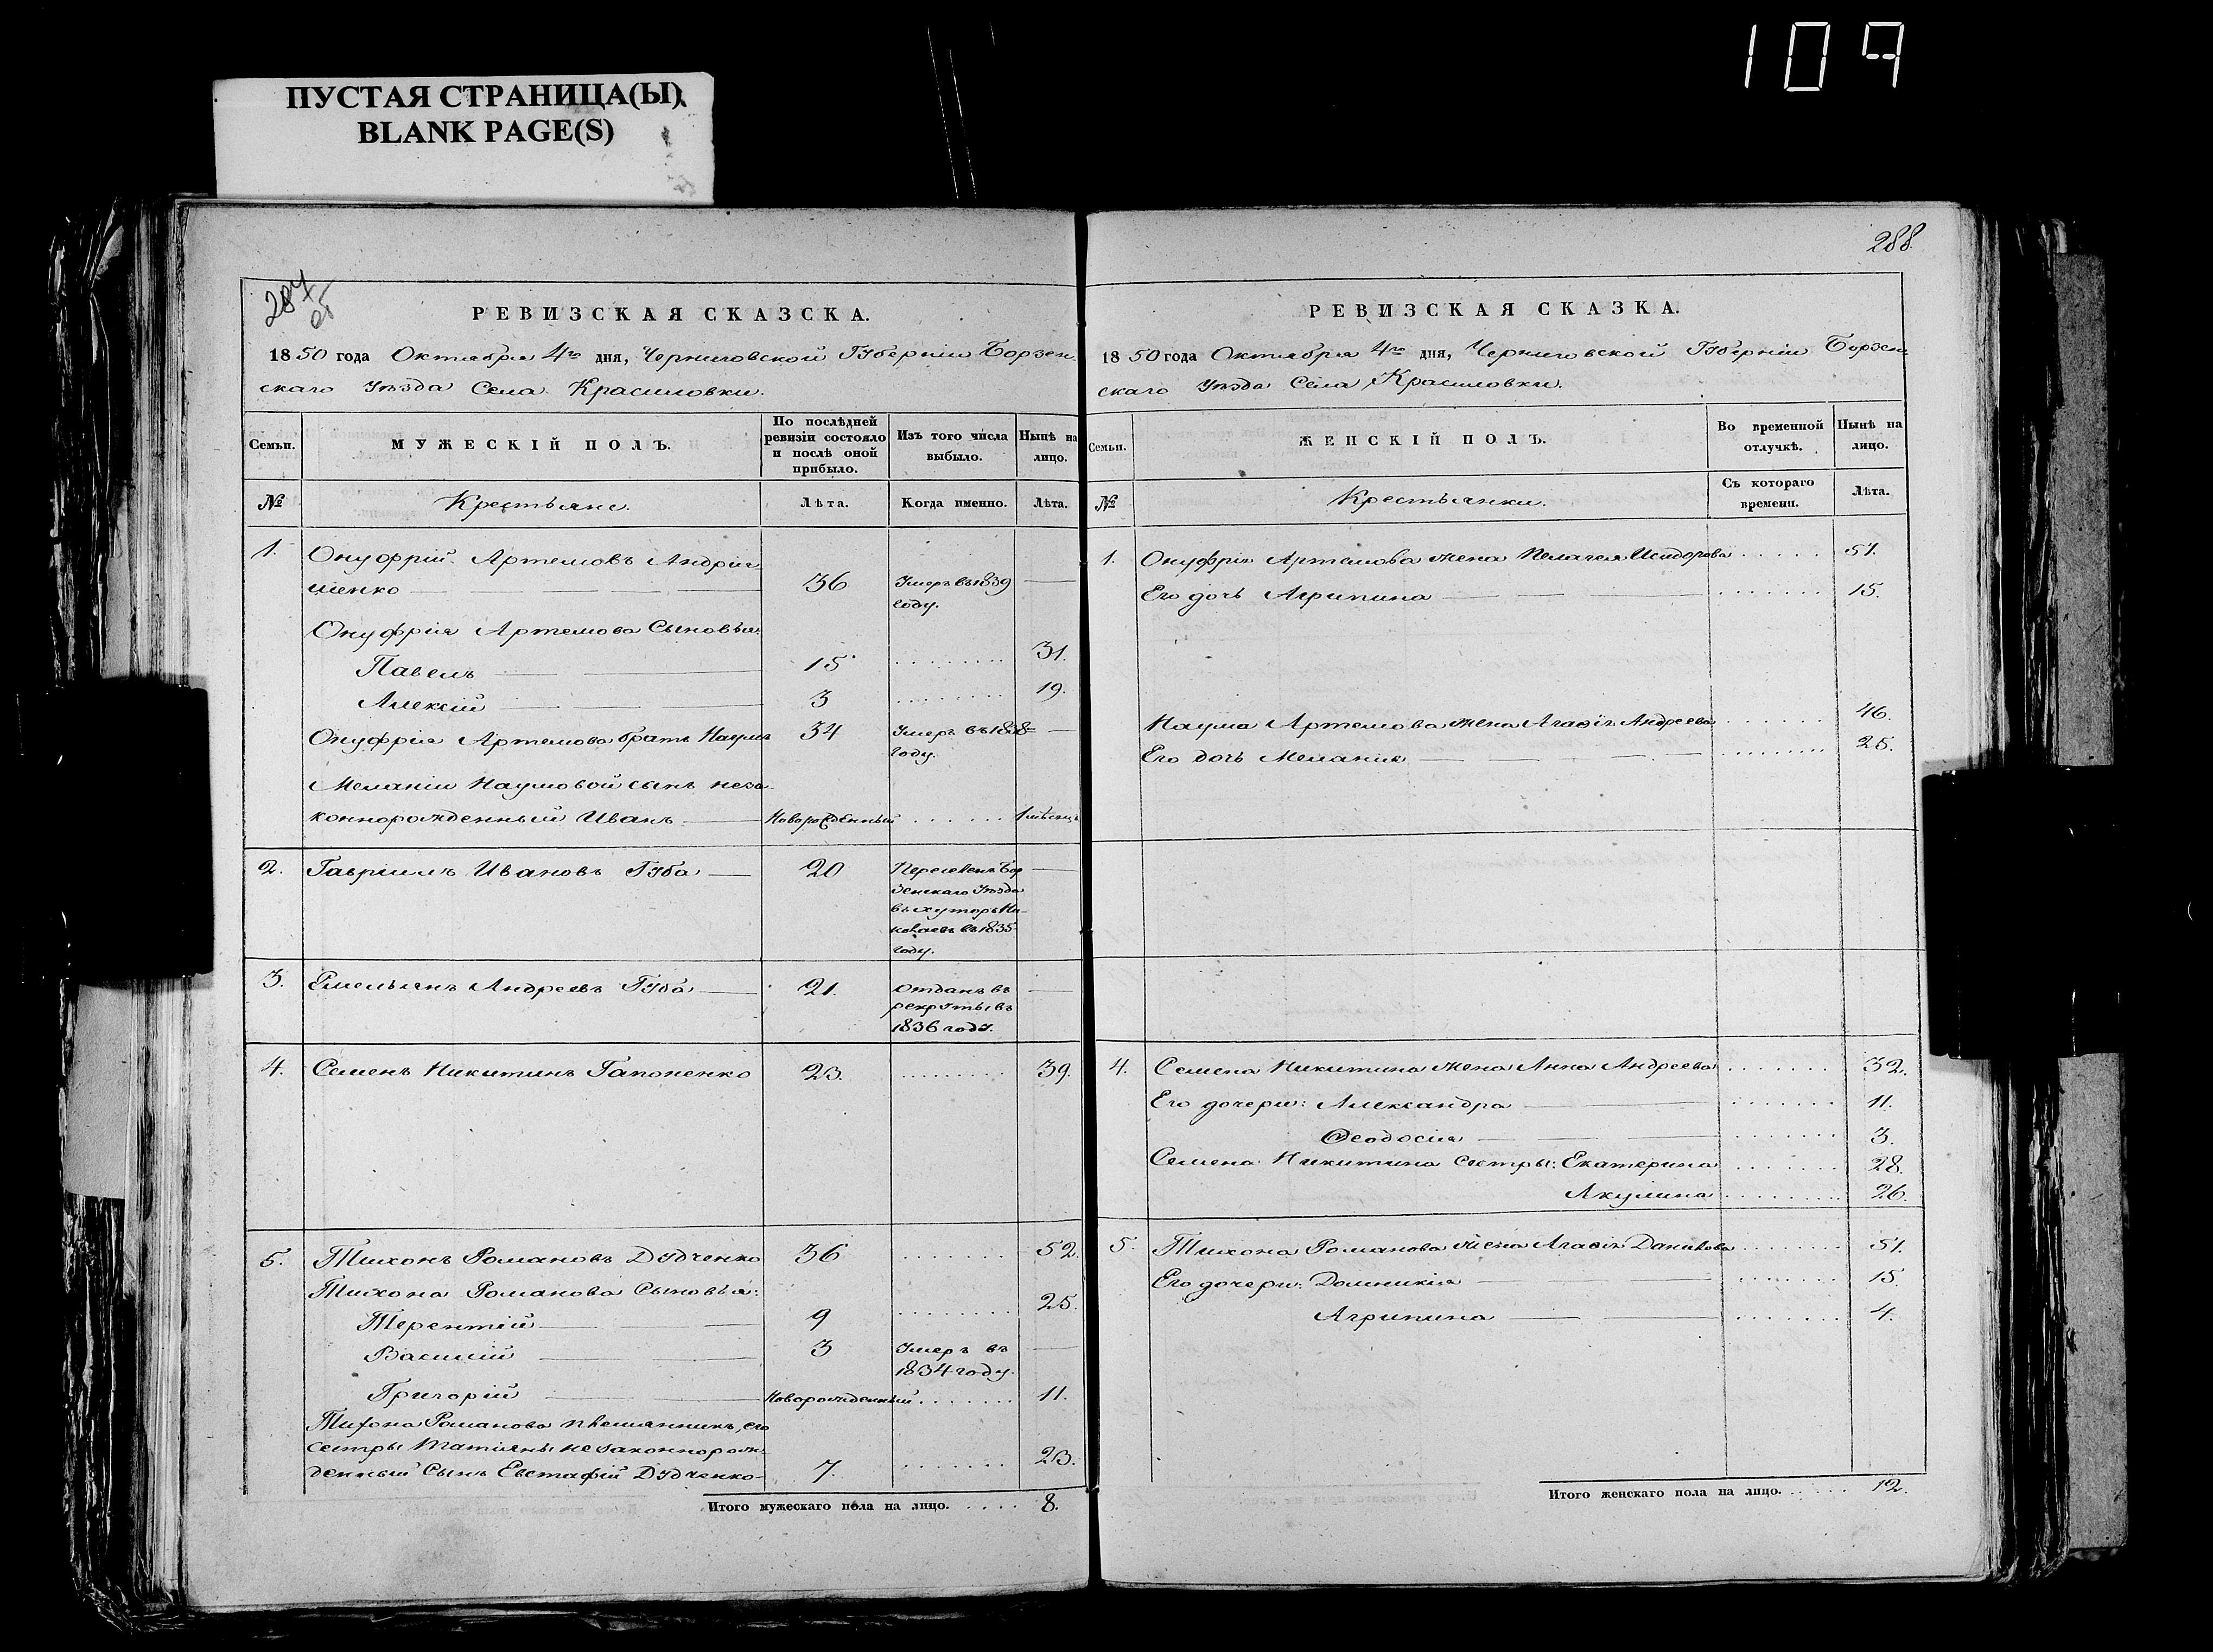 109
ПУСТАЯ СТРАНИЦА(Ы)
BLANK PAGE(S)
287
об
РЕВИЗСКАЯ СКАЗСКА.
1850 года Октября 4го дня, Черниговской Губерніи Борзен
скаго Уѣзда Села Красиловки.
Семьи.
МУЖЕСКІЙ ПОЛЪ.
По послѣдней
ревизіи состояло
и послѣ оной
прибыло.
Изъ того числа
выбыло.
Нынѣ на
лицо.
№ Крестьяне. Лѣта. Когда именно. Лѣта.
1. Онуфрій Артемовъ Андріе
шенко 36 Умеръ въ 1839 году.
Онуфрія Артемова Сыновья:
Павелъ 15 31.
Алексій 3 19.
Онуфрія Артемова братъ Наумъ 34 Умеръ въ году.
Меланіи Наумовой сынъ неза-
коннорожденный Иванъ Новорожденный 1 мѣсяцъ
2. Гавріилъ Ивановъ Губа 20 Бор
зенскаго Уѣзда
въ хуторъ Ни-
колаевъ въ 1835
году.
3. Емельянъ Андреевъ Губа 21. Отданъ въ
рекруты въ
1836 году.
4. Семенъ Никитинъ Гапоненко 23. 39.
5. Тихонъ Романовъ Дудченко 36 52.
Тихона Романова Сыновья:
Терентій 9 25.
Василій 3 Умеръ въ
1834 году.
Григорій Новорожденный 11.
Тихона Романова племянникъ, его
сестры Татіяны незаконнорож-
денный Сынъ Евстафій Дудченко 7. 23.
Итого мужескаго пола на лицо. 8.
288.
РЕВИЗСКАЯ СКАЗКА.
1850 года Октября 4го дня, Черниговской Губерніи Борзен
скаго Уѣзда Села Красиловки.
Семьи.
ЖЕНСКІЙ ПОЛЪ.
Во временной
отлучкѣ.
Нынѣ на
лицо.
№ Крестьянки. Съ котораго
времени. Лѣта.
1. Онуфрія Артемова жена Пелагея Исидорова 51.
Его дочь Агрипина 15.
Наума Артемова жена Агафія Андреева 46.
Его дочь Меланія 25.
4. Семена Никитина жена Анна Андреева 32.
Его дочери: Александра 11.
Ѳеодосія 3.
Семена Никитина сестры: Екатерина 28.
Акулина 26.
5. Тихона Романова жена Агафія Данилова 51.
Его дочери: Домникія 15.
Агрипина 4.
Итого женскаго пола на лицо. 12.